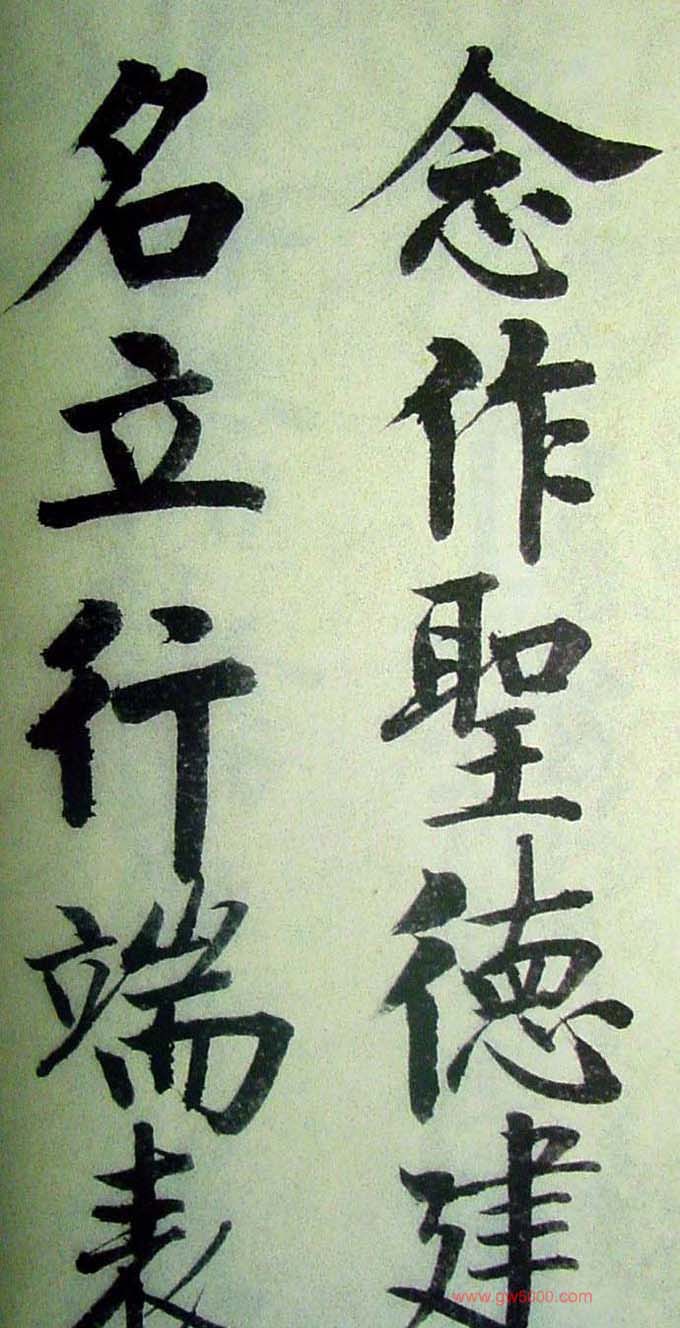 念作聖德建
名立行端表
www.gw5000.com